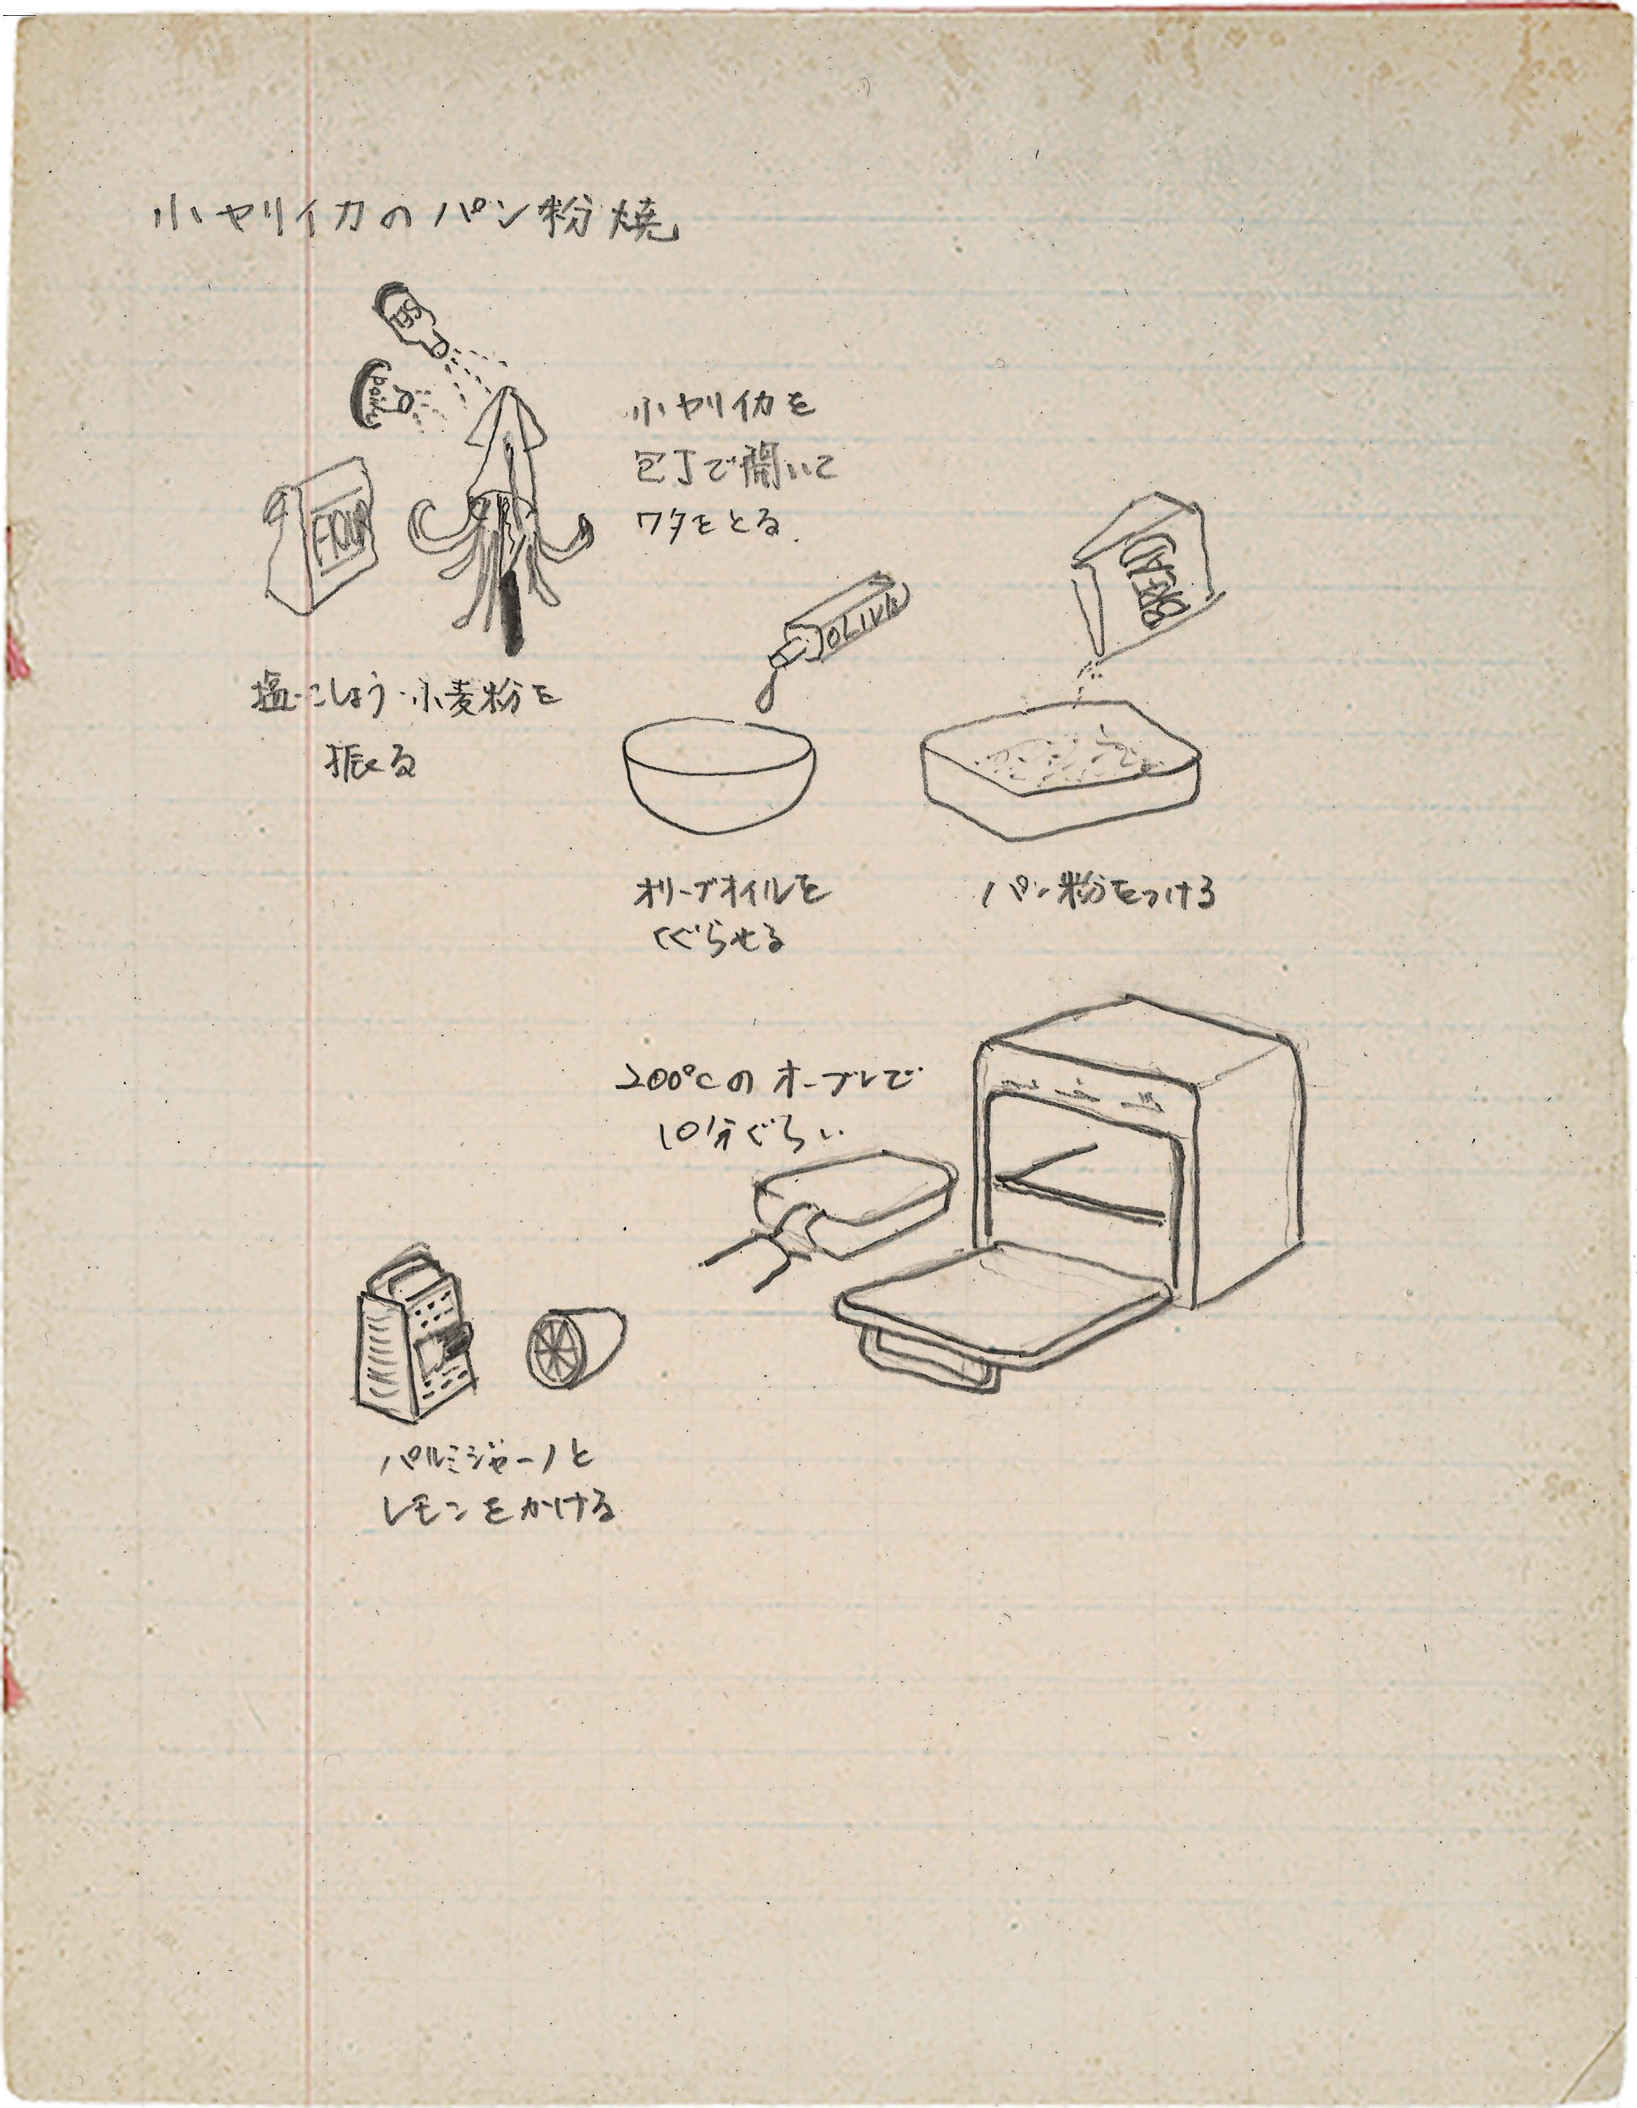 小ヤリイカのパン粉焼
SEL
小ヤリイカを
包丁で開いて
ワタをとる.
FLOUR
塩・こしょう・小麦粉を
振る
OLIVE
BREAD
オリーブオイルを
くぐらせる
パン粉をつける
200℃のオーブンで
10分ぐらい
パルミジャーノと
レモンをかける